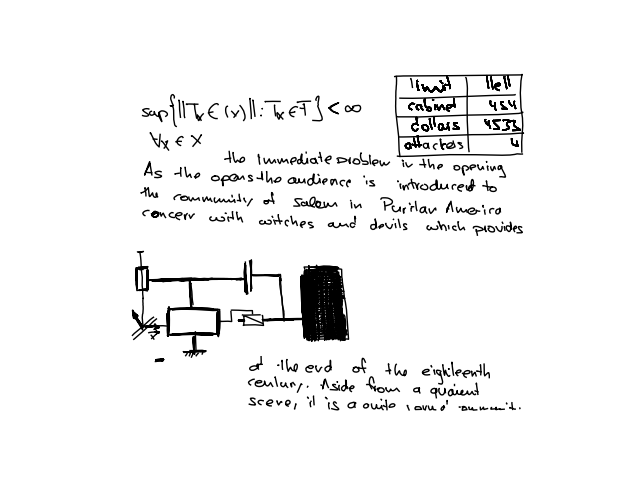 sup{||Tx ∈ (x)|| : Tx ∈ T} < ∞
∀x ∈ X
limit
cabinet 454
dollars 4533
attackers 4
the Immediate problem in the opening
As the opens the audience is introduced to
the community of Salem in Puritan America
concern with witches and devils which provides
at the end of the eighteenth
century. Aside from a quaint
scene, it is a quite